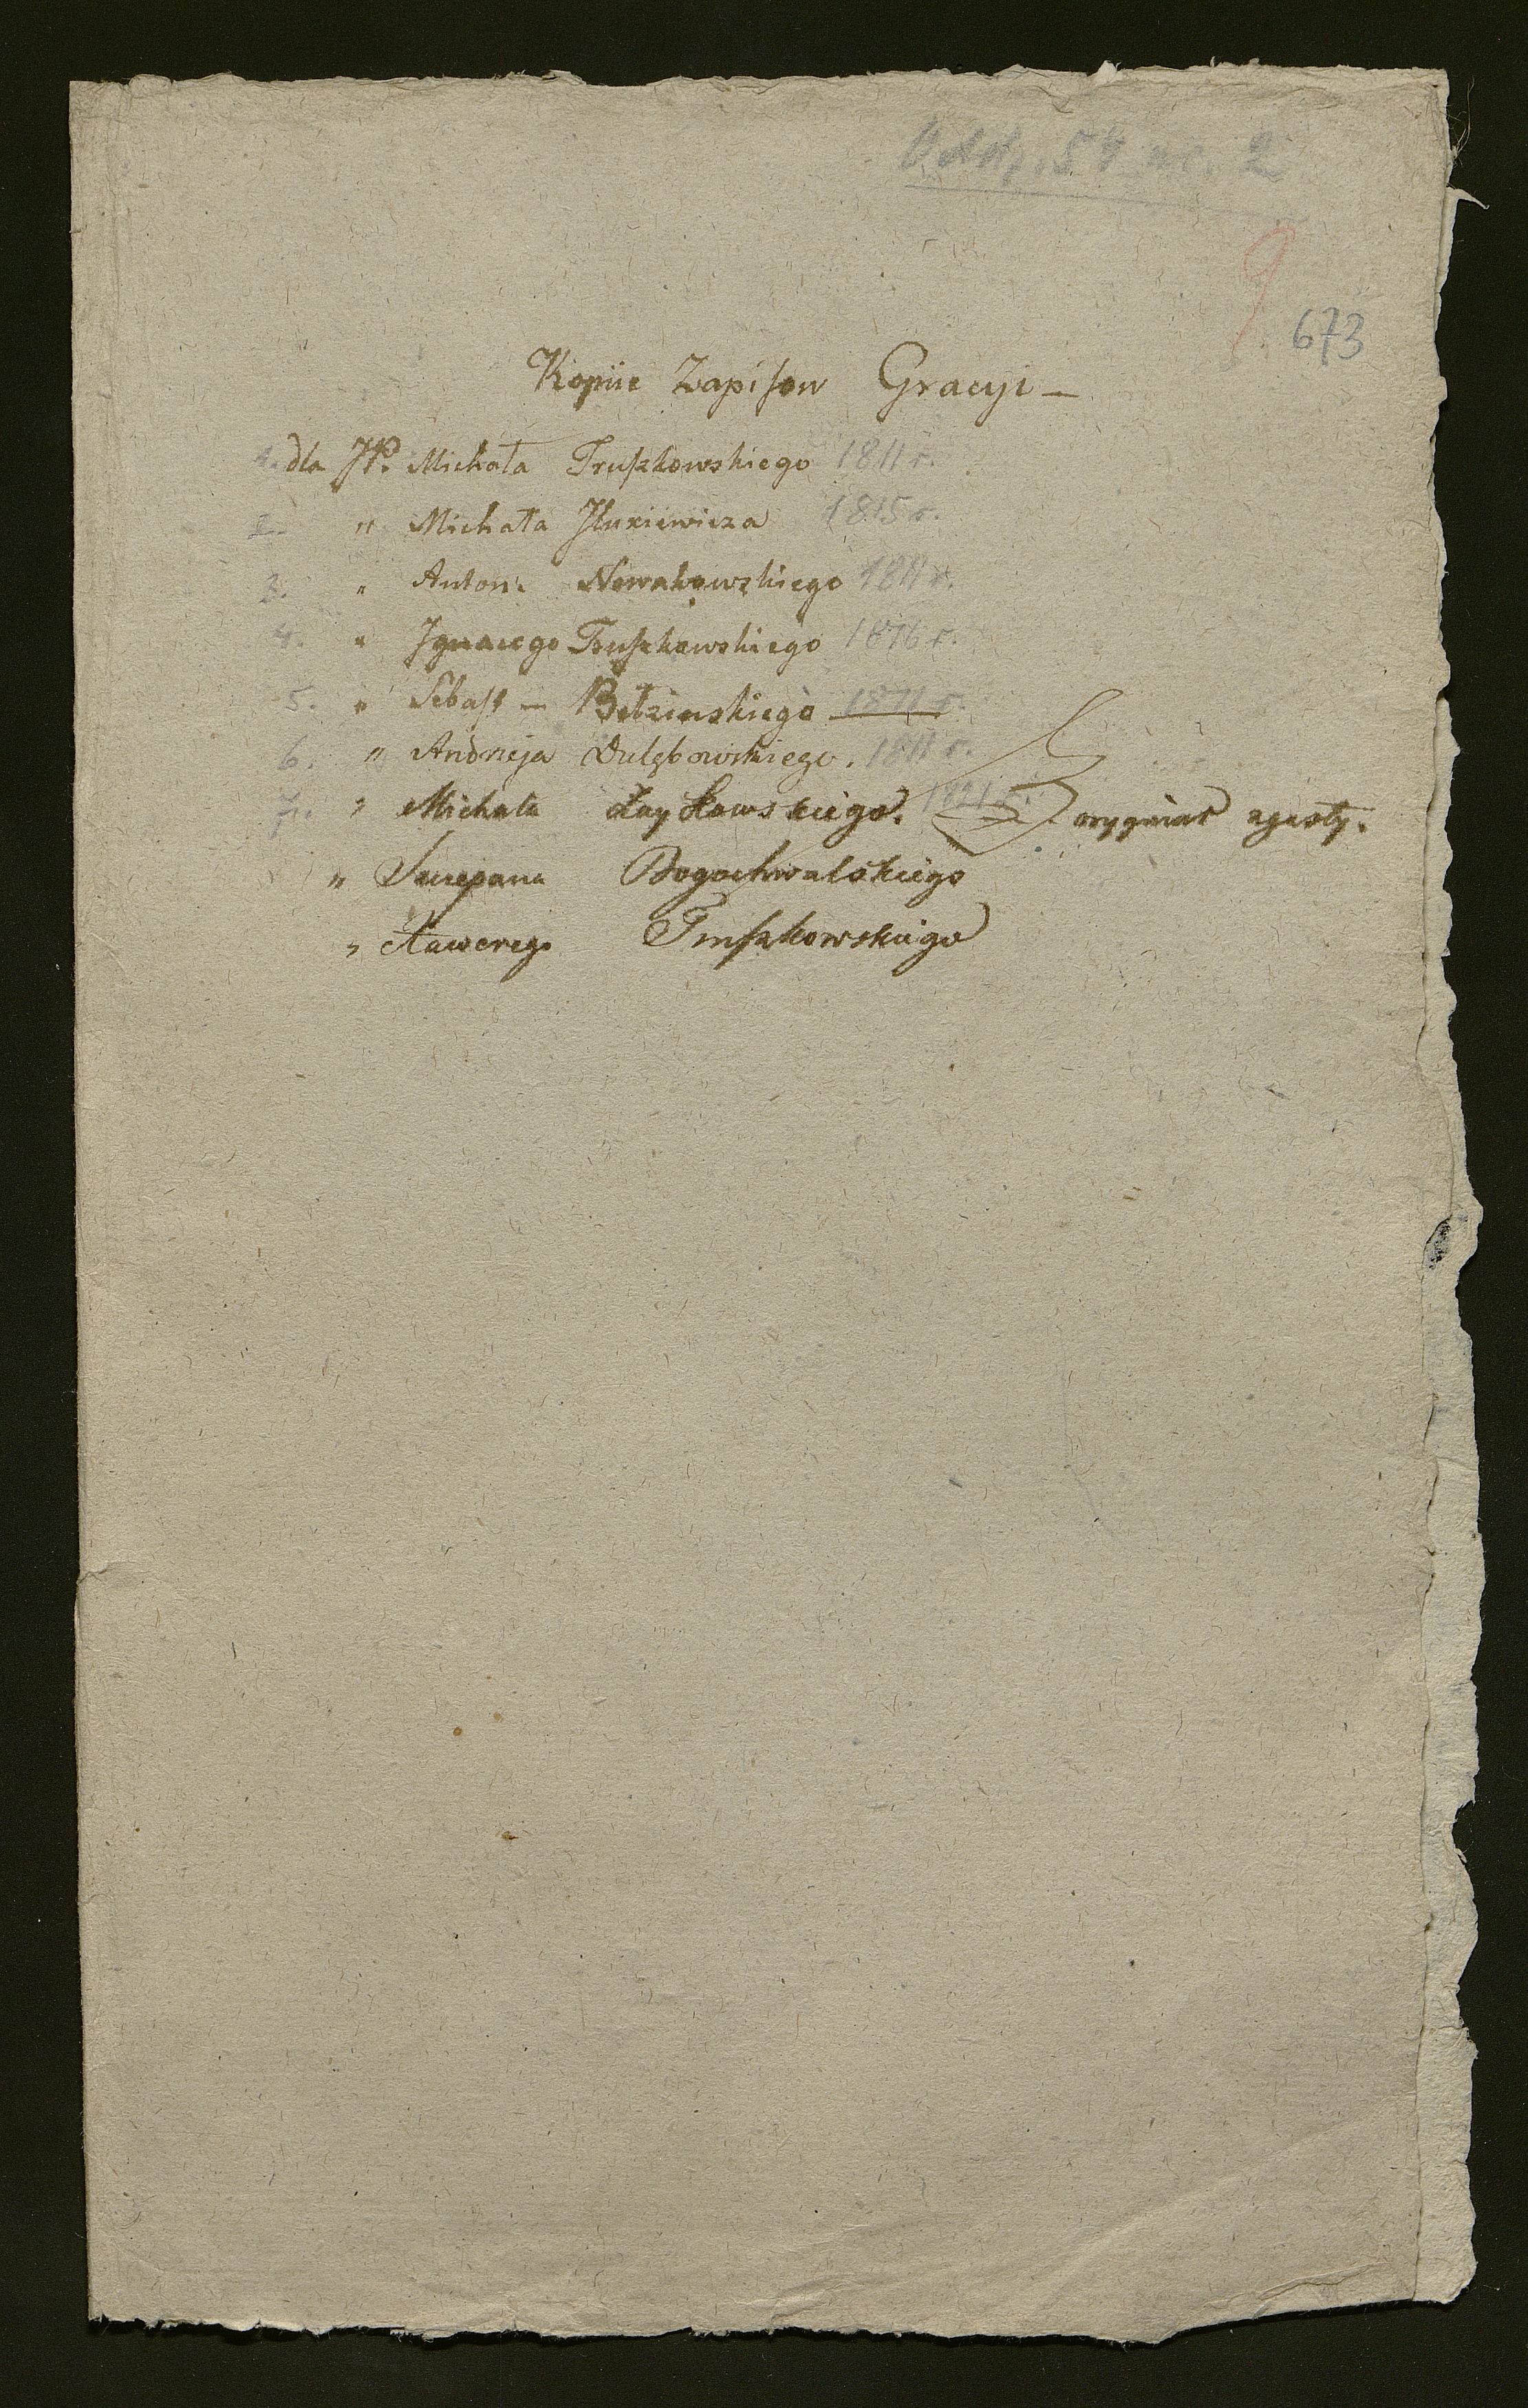 Oddz. 54 nr. 2
9
673
Kopiie Zapisow Gracyi —
1. dla JP. Michała Truszkowskiego 1811 r.
2. " Michała 1815 r.
3. " Antoni Nowakowskiego 1811 r.
4. " Ignacego Truszkowskiego 1816 r.
5. " Sebast — Bełzinskiego 1811 r.
6. " Andrzeja Dulębowskiego. 1811 r.
7. " Michała 1821 r. oryginał
" Szczepana Bogachwalskiego
" Xawerego Truszkowskiego